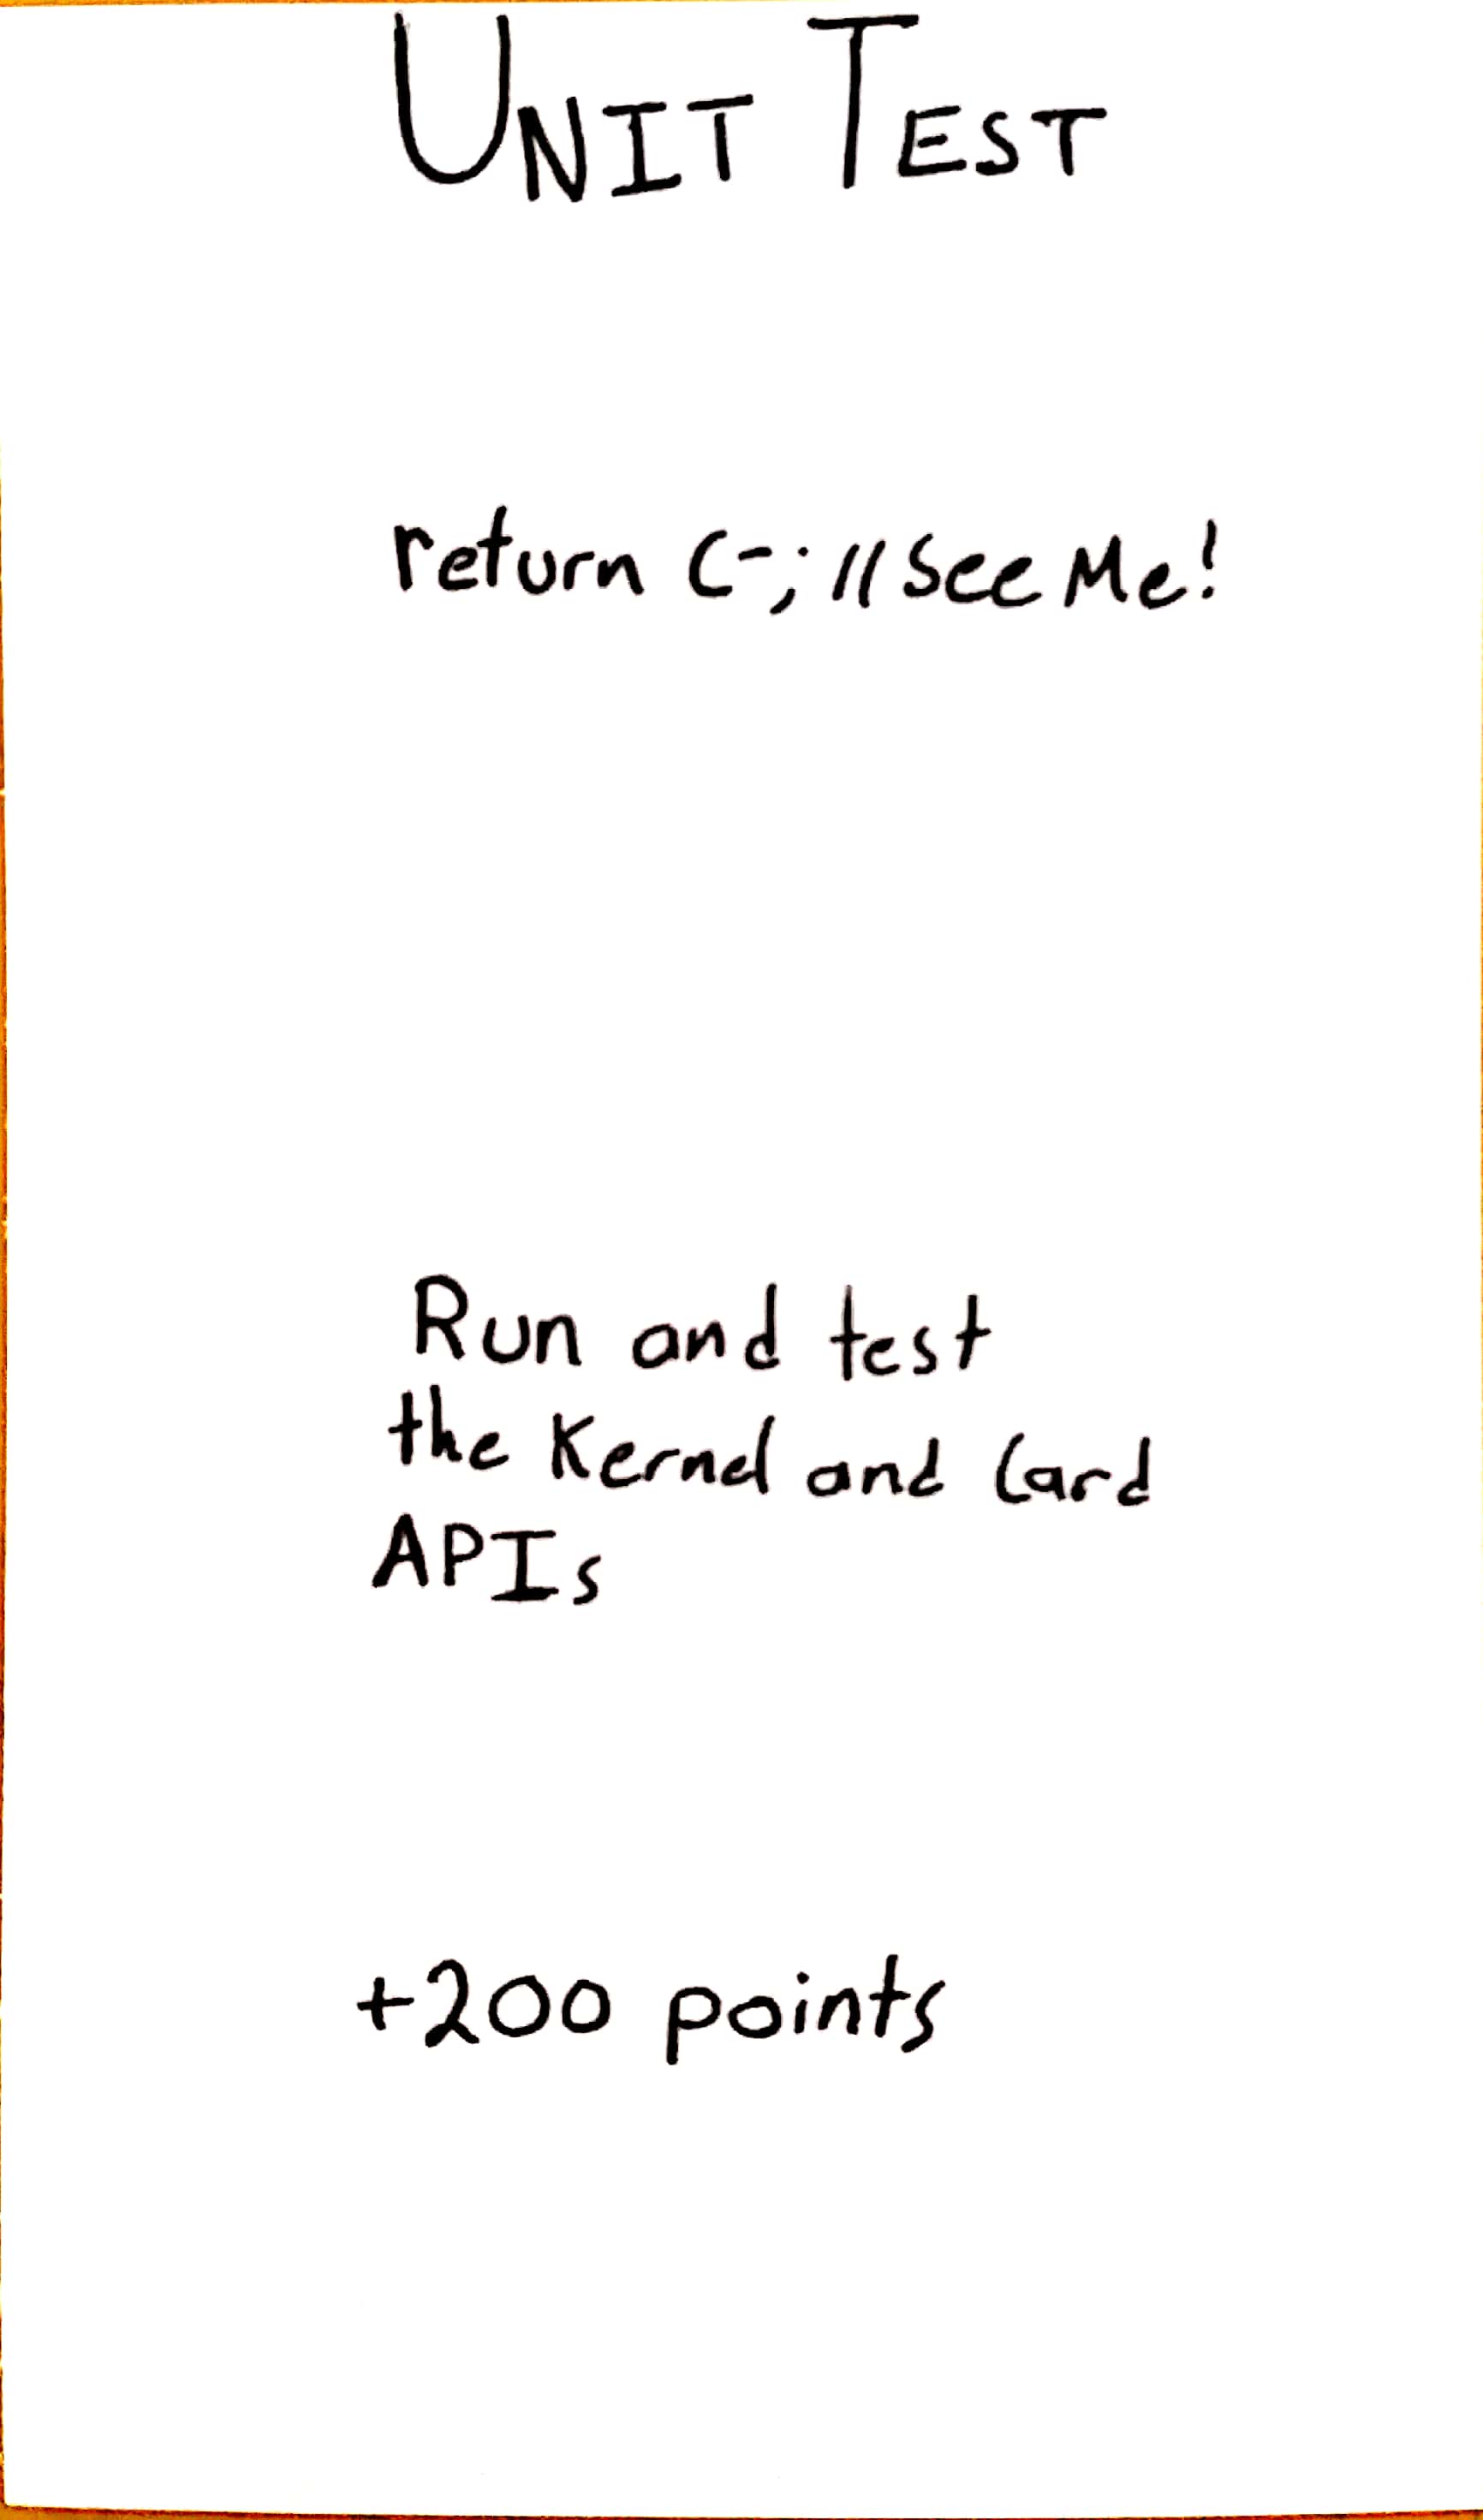 UNIT TEST
return C-; // See Me!
Run and test
the Kernel and Card
APIs
+200 points